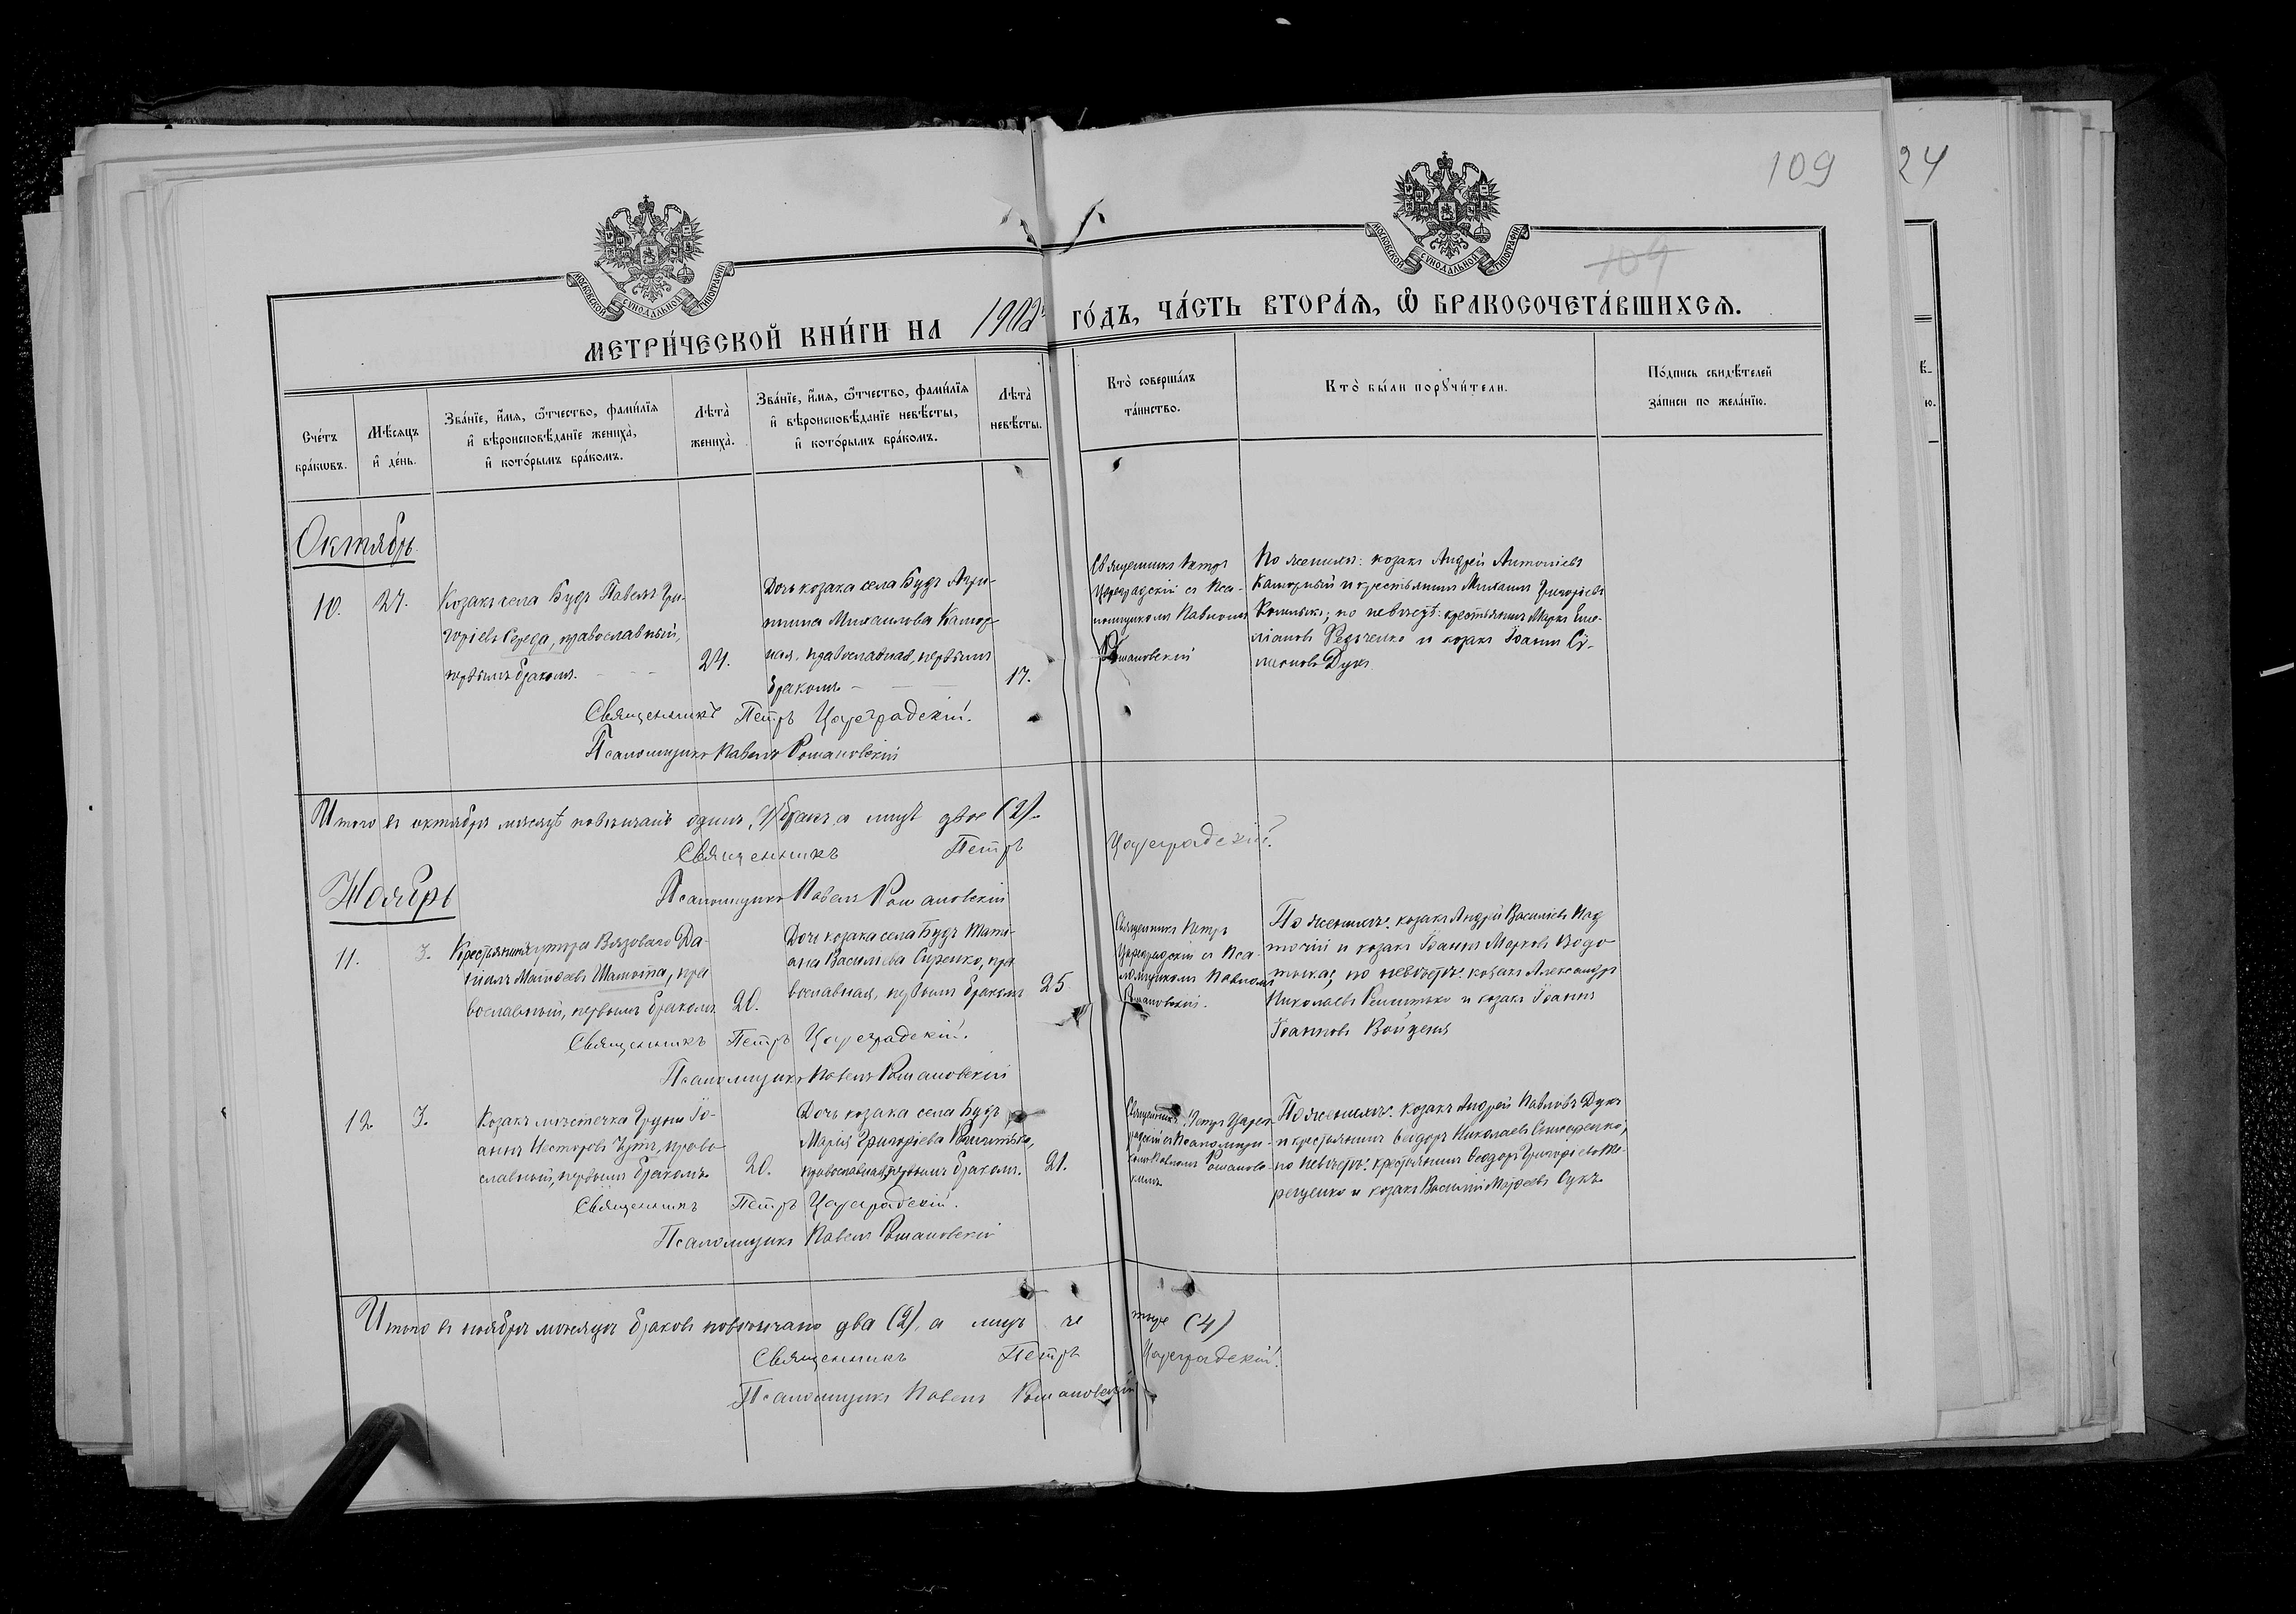 109
24
104
МОСКОВСКОЙ СѴНОДАЛЬНОЙ ТИПОГРАФІИ
МОСКОВСКОЙ СѴНОДАЛЬНОЙ ТИПОГРАФІИ
МЕТРИ́ЧЕСКОЙ КНИ́ГИ НА 1902й ГО́ДЪ, ЧА́СТЬ ВТОРА́Ѧ, Ѽ БРАКОСОЧЕТА́ВШИХСѦ.
Сче́тъ
бра́кѡвъ.
Мѣ́сяцъ
и҆ де́нь.
Зва́нїе, и҆́мѧ, ѻ҆́тчество, фами́лїѧ
и҆ вѣроисповѣ́данїе жениха̀,
и҆ кото́рымъ бра́комъ.
Лѣта̀
жениха̀.
Зва́нїе, и҆́мѧ, ѻ҆́тчество, фами́лїѧ
и҆ вѣроисповѣ́данїе невѣ́сты,
и҆ кото́рымъ бра́комъ.
Лѣта̀
невѣ́сты.
Кто̀ соверша́лъ
та́инство.
Кто̀ бы́ли порꙋчи́тели.
По́дпись свидѣ́телей
за́писи по жела́нїю.
Октябрь
10.
27.
Козакъ села Будъ Павелъ Гри-
горіевъ Середа, православный,
первымъ бракомъ.
24.
Дочь козака села Будъ Агри-
пина Михаилова Катор-
ная, православная, первымъ
бракомъ
17.
Священникъ Петръ
Цареградскій съ Пса-
ломщикомъ Павломъ
Романовскій
По женихѣ: козакъ Андрей Антоніевъ
Каторный и крестьянинъ Михаилъ Григоріевъ
по невѣстѣ: крестьянинъ Марко Еме-
ліановъ Редченко и козакъ Іоаннъ Си-
меоновъ Дукъ
Священникъ Петръ Цареградскій.
Псаломщикъ Павелъ Романовскій
Итого въ октябрѣ мѣсяцѣ повѣнчанъ одинъ (1) бракъ, а лицъ двое (2).
Священникъ Петръ Цареградскій.
Псаломщикъ Павелъ Романовскій
Ноябрь
11.
3.
Крестьянинъ хутора Вязоваго Да-
ніилъ Матѳеевъ Шамота, пра
вославный, первымъ бракомъ
20.
Дочь козака села Будъ Тати-
ана Васильева Сиренко, пра
вославная, первымъ бракомъ
25
Священникъ Петръ
Цареградскій съ Пса-
ломщикомъ Павломъ
Романовскій.
По женихѣ: козакъ Андрей Василіевъ Под
точій и козакъ Іоаннъ Марковъ Водо
тыка; по невѣстѣ: козакъ Александръ
Николаевъ Решитько и козакъ Іоаннъ
Іоанновъ Войценя
Священникъ Петръ Цареградскій.
Псаломщикъ Павелъ Романовскій
12.
3.
Козакъ мѣстечка Груни Іо-
аннъ Несторовъ Гутъ, право
славный, первымъ бракомъ
20.
Дочь козака села Будъ
Марія Григоріева Решитько,
православная, первымъ бракомъ.
21.
Священникъ Петръ Царег
радскій съ Псаломщи-
комъ Павломъ Романовс-
кимъ
По женихѣ: козакъ Андрей Павловъ Дукъ
и крестьянинъ Ѳеодоръ Николаевъ
по невѣстѣ: крестьянинъ Ѳеодоръ Григоріевъ Те-
рещенко и козакъ Василій Матѳеевъ Сукъ.
Священникъ Петръ Цареградскій.
Псаломщикъ Павелъ Романовскій
Итого въ ноябрѣ мѣсяцѣ браковъ повѣнчано два (2), а лицъ че тыре (4)
Священникъ Петръ Цареградскій.
Псаломщикъ Павелъ Романовскій